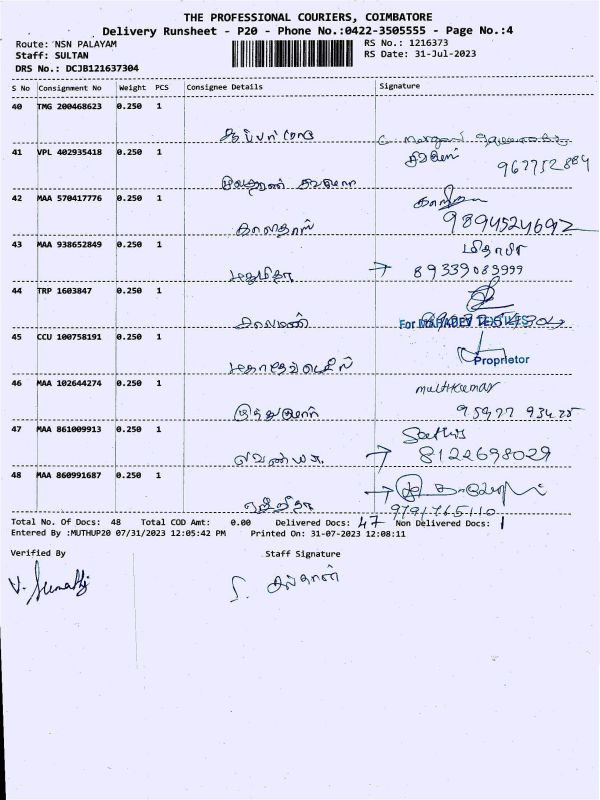 THE PROFESSIONAL COURIERS, COIMBATORE
Delivery Runsheet - P20 - Phone No.:0422-3505555 - Page No.:4
Route: NSN PALAYAM RS No.: 1216373
Staff: SULTAN RS Date: 31-Jul-2023
DRS No.: DCJB121637304
S No Consignment No Weight PCS Consignee Details Signature
40 TMG 200468623 0.250 1
41 VPL 402935418 0.250 1
42 MAA 570417776 0.250 1
காளிதாஸ் 9894524692
43 MAA 938652849 0.250 1
மதுமிதா → 89339089999
44 TRP 1603847 0.250 1
சாலமன்
For MAHADEV TEXTILES
45 CCU 100758191 0.250 1
Proprietor
46 MAA 102644274 0.250 1 muthkumar
முத்துகுமார் 95977 93425
47 MAA 861009913 0.250 1
→ 8122698029
48 MAA 860991687 0.250 1
9791765110
Total No. Of Docs: 48 Total COD Amt: 0.00 Delivered Docs: 47 Non Delivered Docs: 1
Entered By :MUTHUP20 07/31/2023 12:05:42 PM Printed On: 31-07-2023 12:08:11
Verified By Staff Signature
V. Sumathi S. சுல்தான்